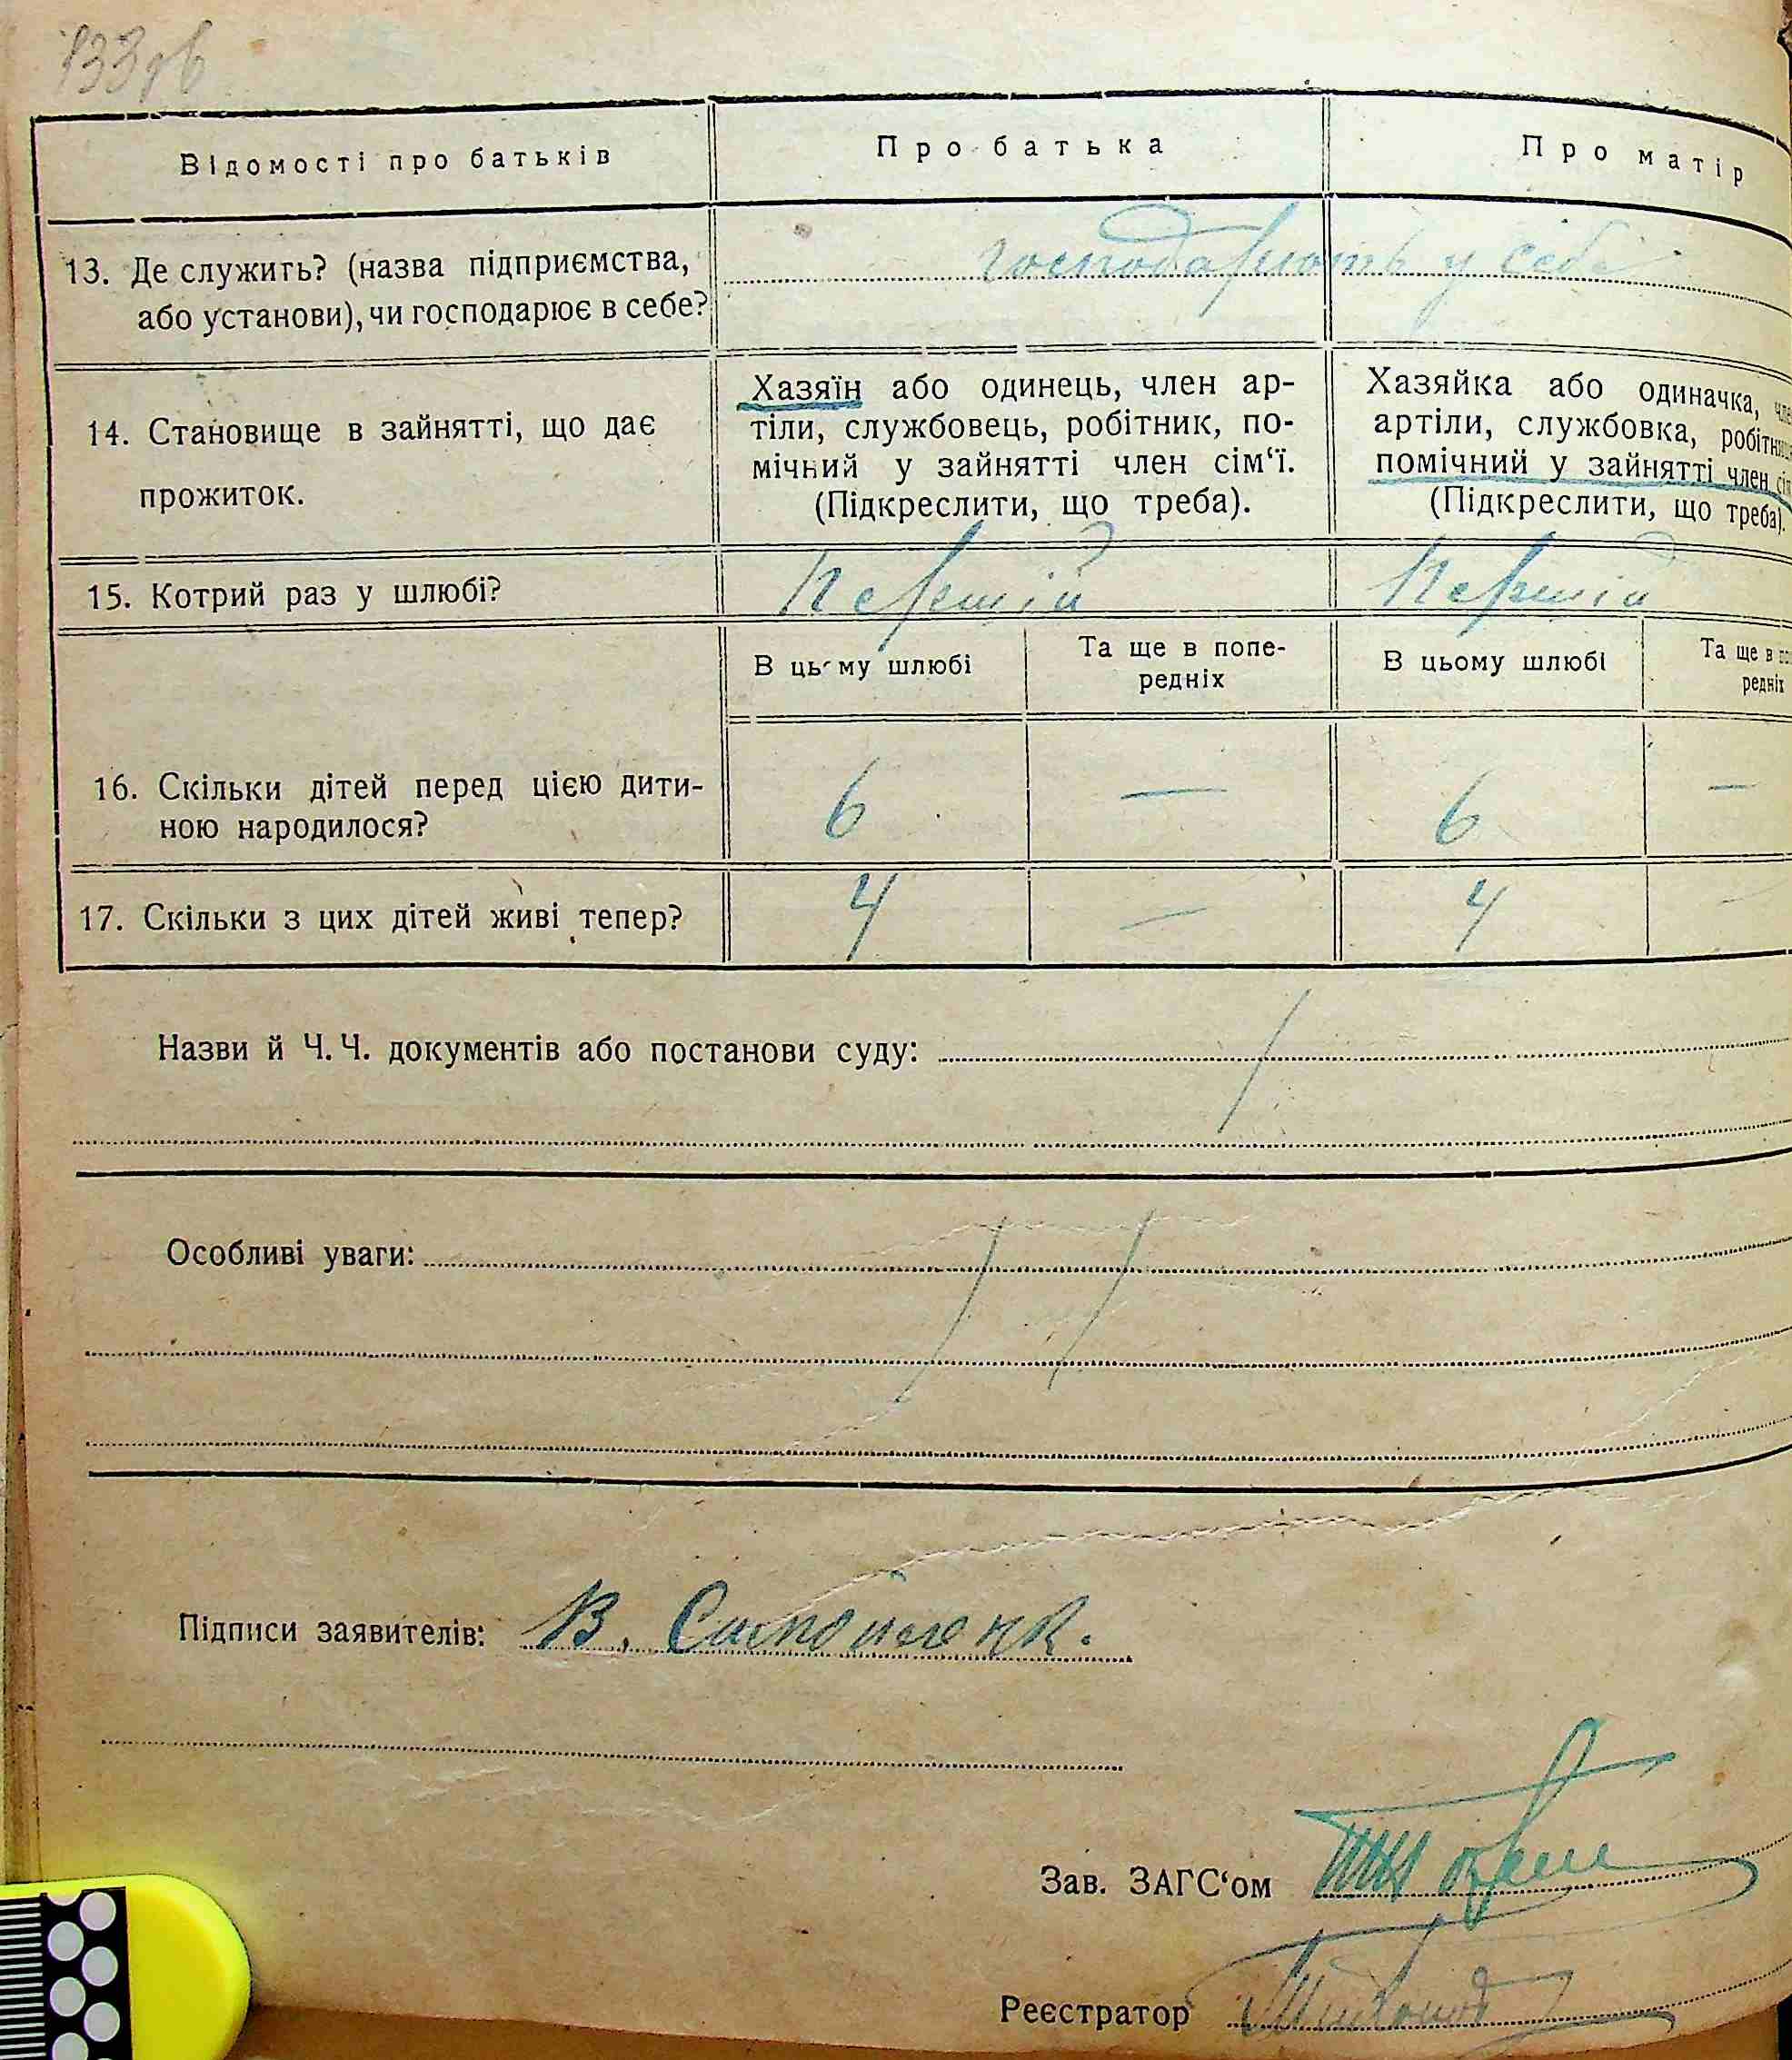 133 зв
Відомості про батьків
Про батька
Про матір
13. Де служить? (назва підприємства,
або установи), чи господарює в себе?
господарюють у себе
14. Становище в зайнятті, що дає
прожиток.
Хазяїн або одинець, член ар-
тіли, службовець, робітник, по-
мічний у зайнятті член сім‘ї.
(Підкреслити, що треба).
Хазяйка або одиначка, чле
артіли, службовка, робітниця
помічний у зайнятті член сім
(Підкреслити, що треба).
15. Котрий раз у шлюбі?
Перший
Перший
В цьому шлюбі
Та ще в попе-
редніх
В цьому шлюбі
Та ще в по
редніх
16. Скільки дітей перед цією дити-
ною народилося?
6 — 6 —
17. Скільки з цих дітей живі тепер?
4 — 4 —
Назви й Ч. Ч. документів або постанови суду:
Особливі уваги:
Підписи заявителів: В.
Зав. ЗАГС‘ом
Реєстратор